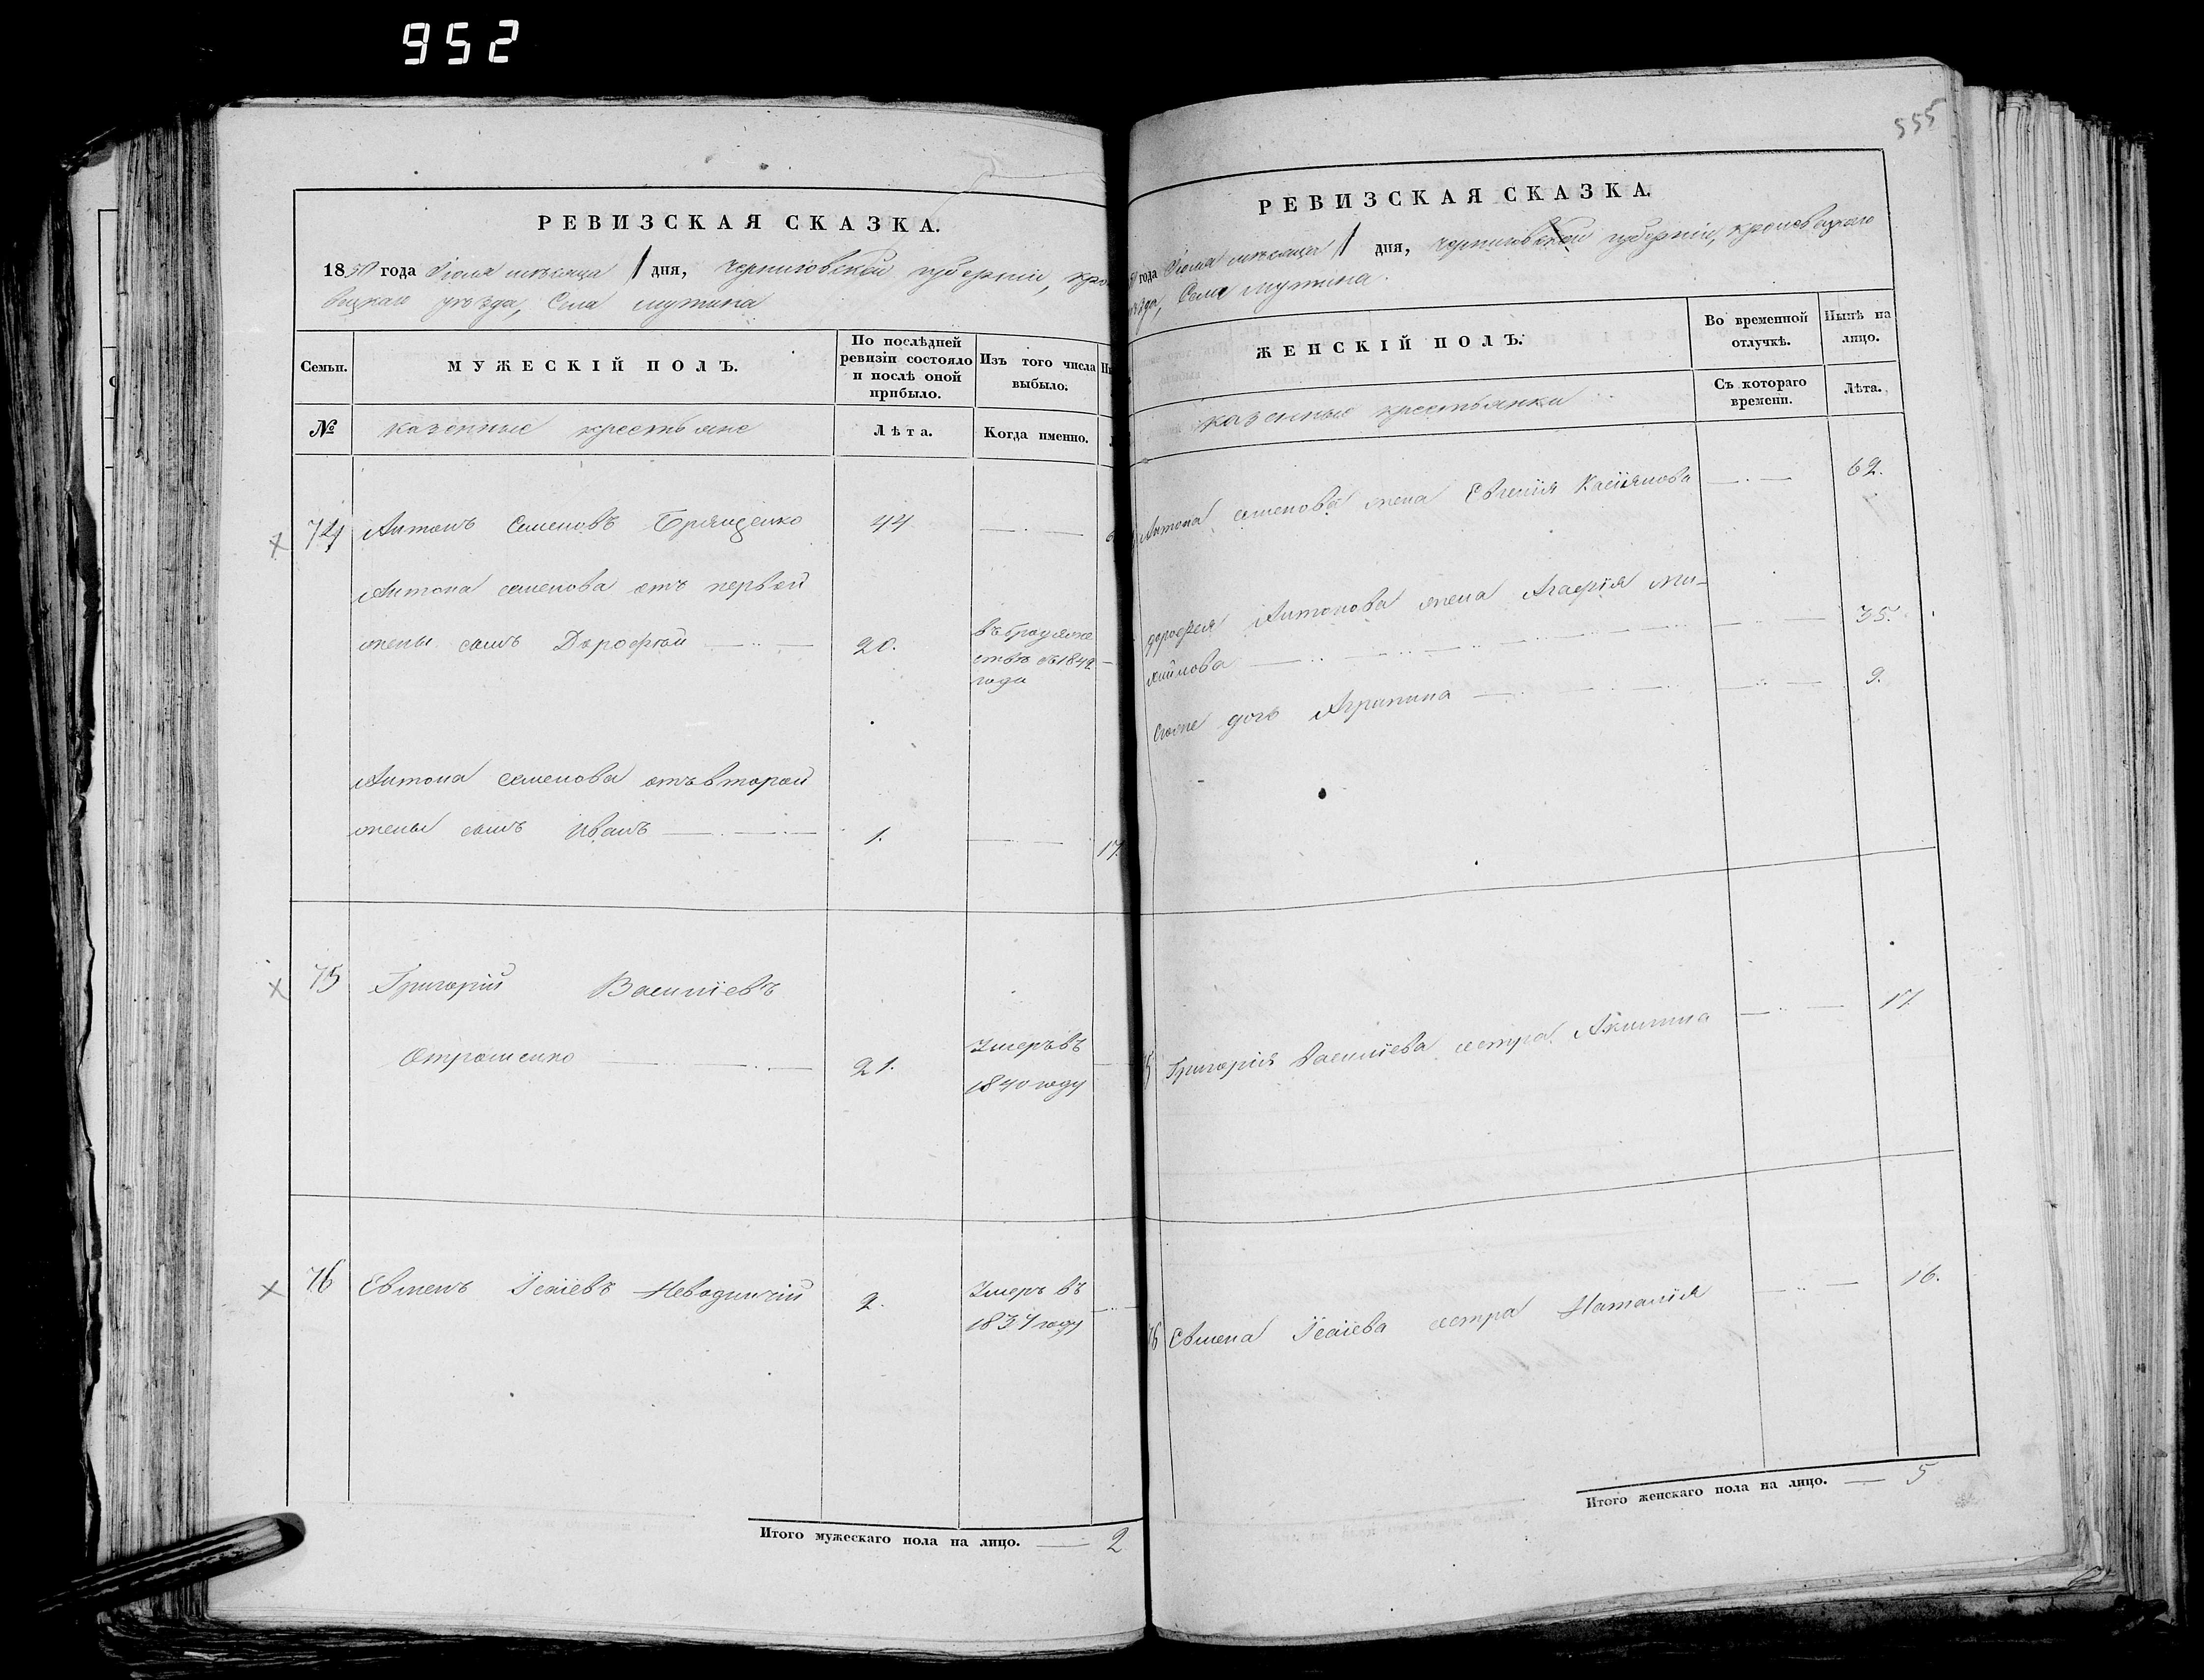 952
РЕВИЗСКАЯ СКАЗКА.
1850 года Іюля мѣсяца 1 дня, Черниговской губерніи, кро
вецкаго уѣзда, Села Мутина
Семьи.
МУЖЕСКІЙ ПОЛЪ.
По послѣдней ревизіи состояло и послѣ оной прибыло.
Изъ того числа выбыло.
№
казенные крестьяне
Лѣта.
Когда именно.
74 Антонъ Семеновъ Брященко 44
Антона семенова отъ первой
жены сынъ Дорофѣй 20. въ бродяже
ствѣ съ 1849
года
Антона семенова отъ второй
жены сынъ Иванъ 1. 17.
75 Григорій Василіевъ
Отрошенко 21. Умеръ въ
1840 году
76 Евменъ Ісаіевъ Неводничій 2. Умеръ въ
1834 году
Итого мужескаго пола на лицо. 2
555
РЕВИЗСКАЯ СКАЗКА.
года Іюля мѣсяца 1 дня, Черниговской губерніи, кролевецкаго
уѣзда, Села Мутина.
ЖЕНСКІЙ ПОЛЪ.
Во временной отлучкѣ.
Нынѣ на лицо.
казенные крестьянки
Съ котораго времени.
Лѣта.
Антона семенова жена Евгенія Касіянова 62.
дорофея Антонова жена Агафія Ми-
хайлова 35.
Ево же дочь Агрипина 9.
Григорія Василіева сестра Акилина 17.
76 Евмена Ісаіева сестра Наталія 16.
Итого женскаго пола на лицо. 5